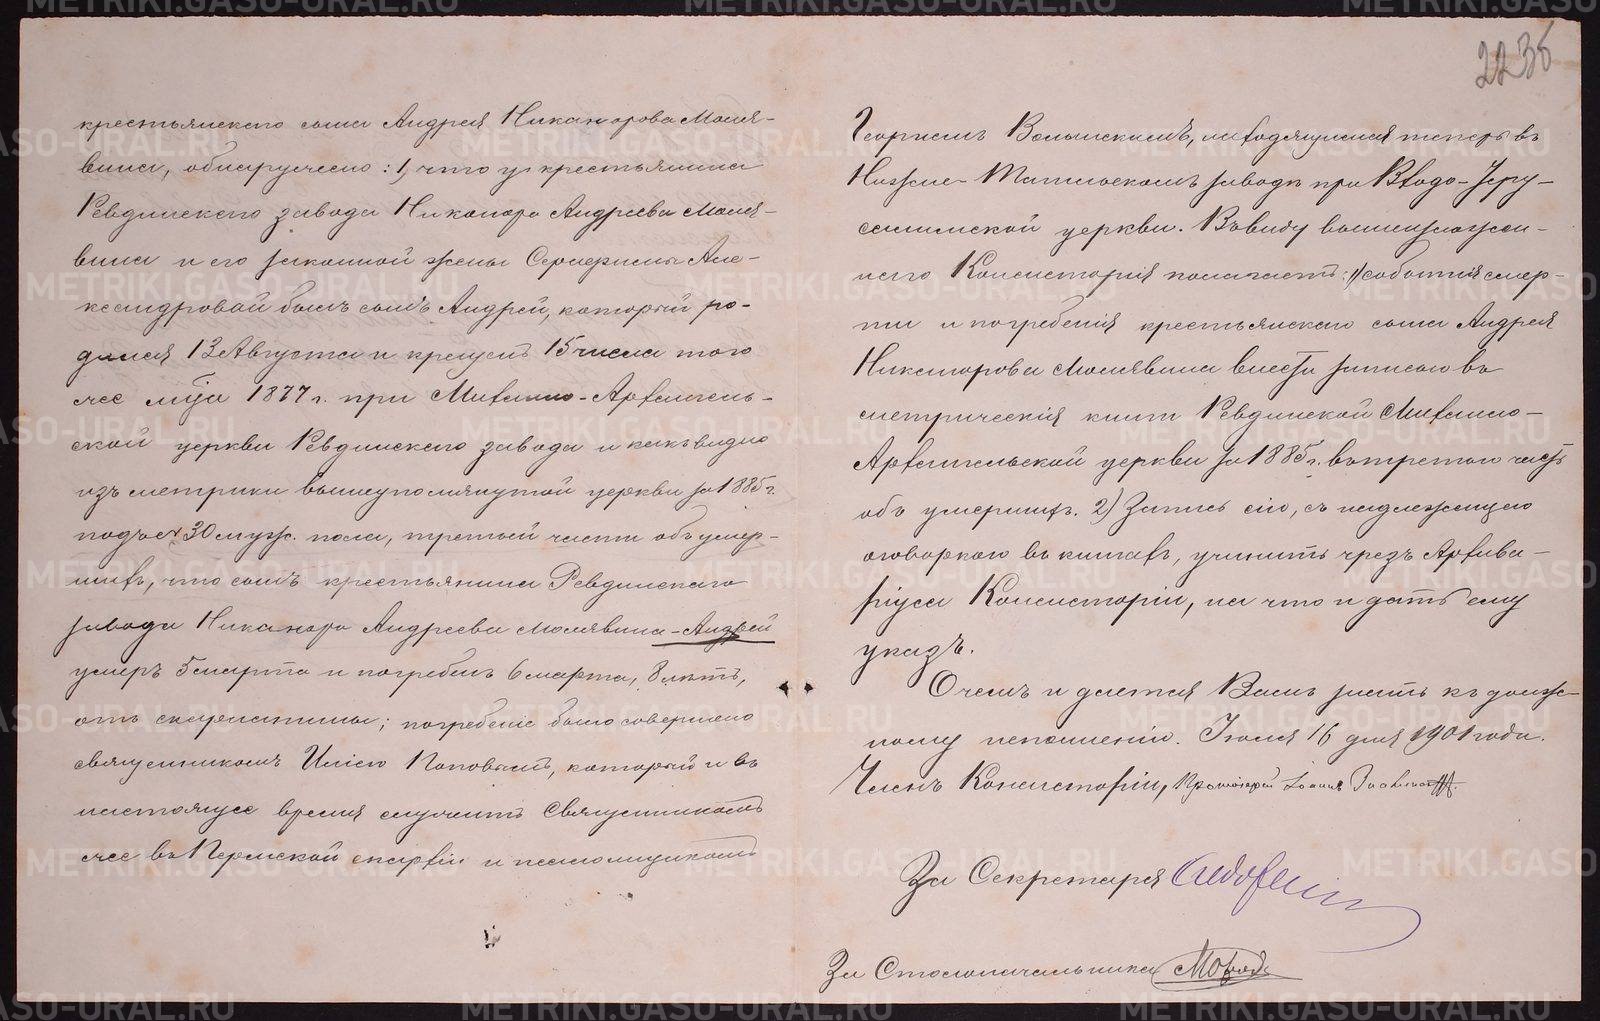 крестьянскаго сына Андрея Никанорова Моля-
вина, обнаружено: 1, что у крестьянина
Ревдинскаго завода Никанора Андреева Моля-
вина и его законной жены Серафимы Але-
ксандровой былъ сынъ Андрей, который ро-
дился 13 Августа и крещенъ 15 числа того
же м҃ца 1877 г. при Михаило-Архангель-
ской церкви Ревдинскаго завода и какъ видно
изъ метрики вышеупомянутой церкви за 1885 г.
подъ ст 30 муж. пола, третьей части объ умер-
шихъ, что сынъ крестьянина Ревдинскаго
завода Никанора Андреева Молявина - Андрей
умеръ 5 марта и погребенъ 6 марта, 8 лѣтъ,
отъ скарлатины; погребеніе было совершено
священникомъ Иліею Поповымъ, который и въ
настоящее время служитъ священникомъ
же въ Пермской епархіи и псаломщикомъ
2236
Георгіемъ Волынскимъ, находящимся теперь въ
Нижне-Тагильскомъ заводѣ при Входо-Іеру-
салимской церкви. Въ виду вышеизложен-
наго Консисторія полагаетъ: 1) событія смер-
ти и погребенія крестьянскаго сына Андрея
Никанорова Молявина внести записью въ
метрическія книги Ревдинской Михаило-
Архангельской церкви за 1885 г. въ третью часть
объ умершихъ. 2) Запись сію, съ надлежащею
оговоркою въ книгахъ, учинить чрезъ Архива-
ріуса Консисторіи, на что и дать ему
указъ.
О чемъ и дается Вамъ знать къ долж-
ному исполненію. Іюля 16 дня 1901 года.
Членъ Консисторіи, Протоіерей Іоаннъ
За Секретаря
За Столоначальника
METRIKI.GASO-URAL.RU